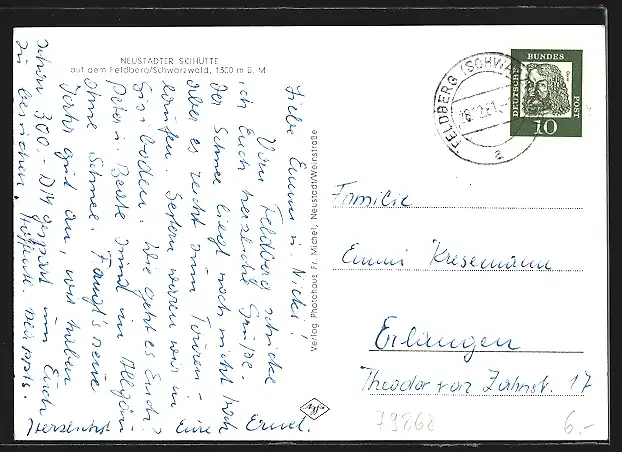 NEUSTADTER SKIHÜTTE
auf dem Feldberg/Schwarzwald, 1300 m ü. M
Liebe Emmi u. Nicki!
Vom Feldberg schicke
ich Euch herzliche Grüße.
Der Schnee liegt noch nicht hoch
aber es reicht zum Touren-
laufen. Gestern waren wir in
Gisiboden. Wie geht es Euch?
Peter u. Beate sind im Allgäu
ohne Schnee. Fangt's neue
Jahr gut an, wir haben
schon 300.- DM gespart um Euch
zu besuchen. Hoffentl. klappts.
Herzlichst Eure Erna.
Verlag Photohaus Fr. Michel, Neustadt/Weinstraße
FELDBERG (SCHWARZW)
28.12.61.-
a
DEUTSCHE BUNDESPOST
10
Familie
Emmi Kresemann
Erlangen
Theodor von Zahnst. 17
79868
6,-